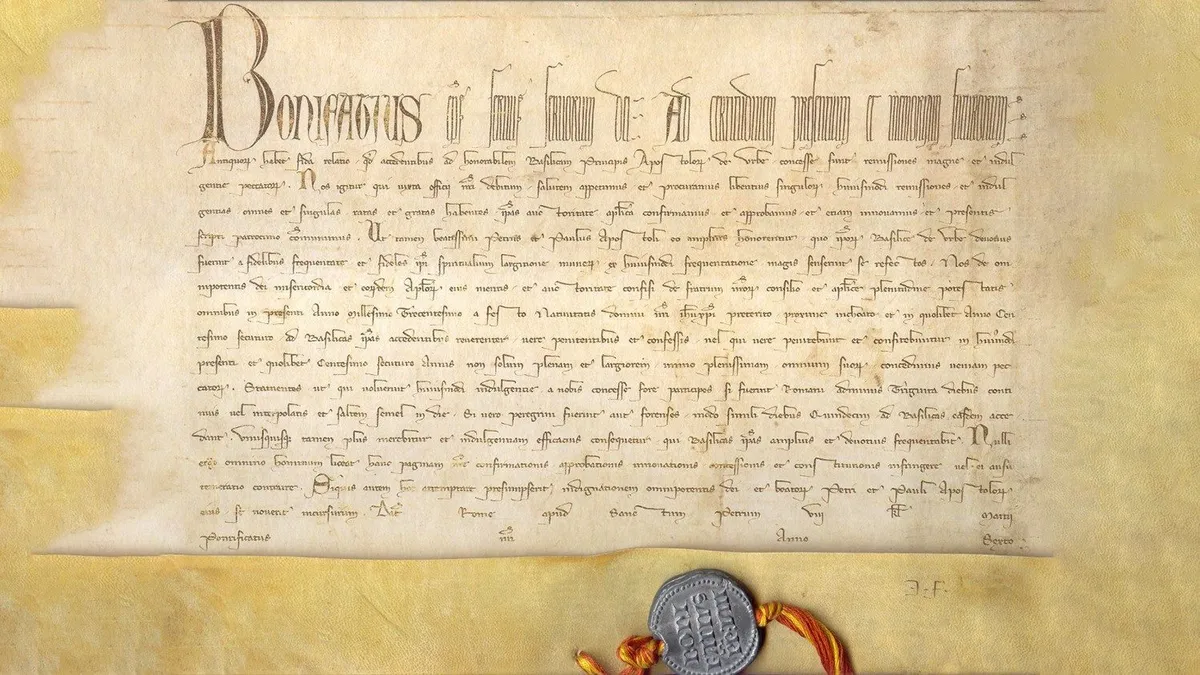 Bonifatius eps servus servorum dei Ad certitudinem presentium et memoriam futurorum
Antiquor habet fida relatio qd accedentibus ad honorabilem Basilicam Principis Apostolor de Urbe concesse sunt remissiones magne et indul
gentie peccator. Nos igitur qui iuxta officii nri debitum salutem appetimus et procuramus libentius singulor huiusmodi remissiones et indul
gentias omnes et singulas ratas et gratas habentes ipas auctoritate aplica confirmamus et approbamus et etiam innovamus et presentis
scripti patrocinio comunimus. Ut tamen beatissimi Petrus et Paulus Apostoli eo amplius honorentur quo ipor Basilice de Urbe devotius
fuerint a fidelibus frequentate et fideles ipi spiritualium largitione muner ex huiusmodi frequentatione magis senserint se refectos Nos de om
nipotentis dei misericordia et eordem Aplor eius meritis et auctoritate confisi de fratrum nror consilio et aplice plenitudine potestatis
omnibus in presenti Anno Millesimo Trecentesimo a festo Nativitatis domini nri ihuxpi preterito proxime inchoato et in quolibet Anno Cen
tesimo secuturo ad Basilicas ipas accedentibus reverenter vere penitentibus et confessis vel qui vere penitebunt et confitebuntur in huiusmodi
presenti et quolibet Centesimo secuturo Annis non solum plenam et largiorem immo plenissimam omnium suor concedimus veniam pec
cator. Statuentes ut qui voluerint huiusmodi indulgentie a nobis concesse fore participes si fuerint Romani adminus Triginta diebus conti
nuis vel interpolatis et saltem semel in die Si vero peregrini fuerint aut forenses modo simili diebus Quindecim ad Basilicas easdem acce
dant. Unusquisq tamen plus merebitur et indulgentiam efficacius consequetur qui Basilicas ipas amplius et devotius frequentabit. Nulli
ergo omnino hominum liceat hanc paginam nre confirmationis approbationis innovationis concessionis et constitutionis infringere vel ei ausu
temerario contraire. Siquis autem hoc attemptare presumpserit indignationem omnipotentis dei et beator Petri et Pauli Apostolor
eius se noverit incursurum. Dat Rome apud Sanctum Petrum viij kl Martii
Pontificatus nri Anno Sexto